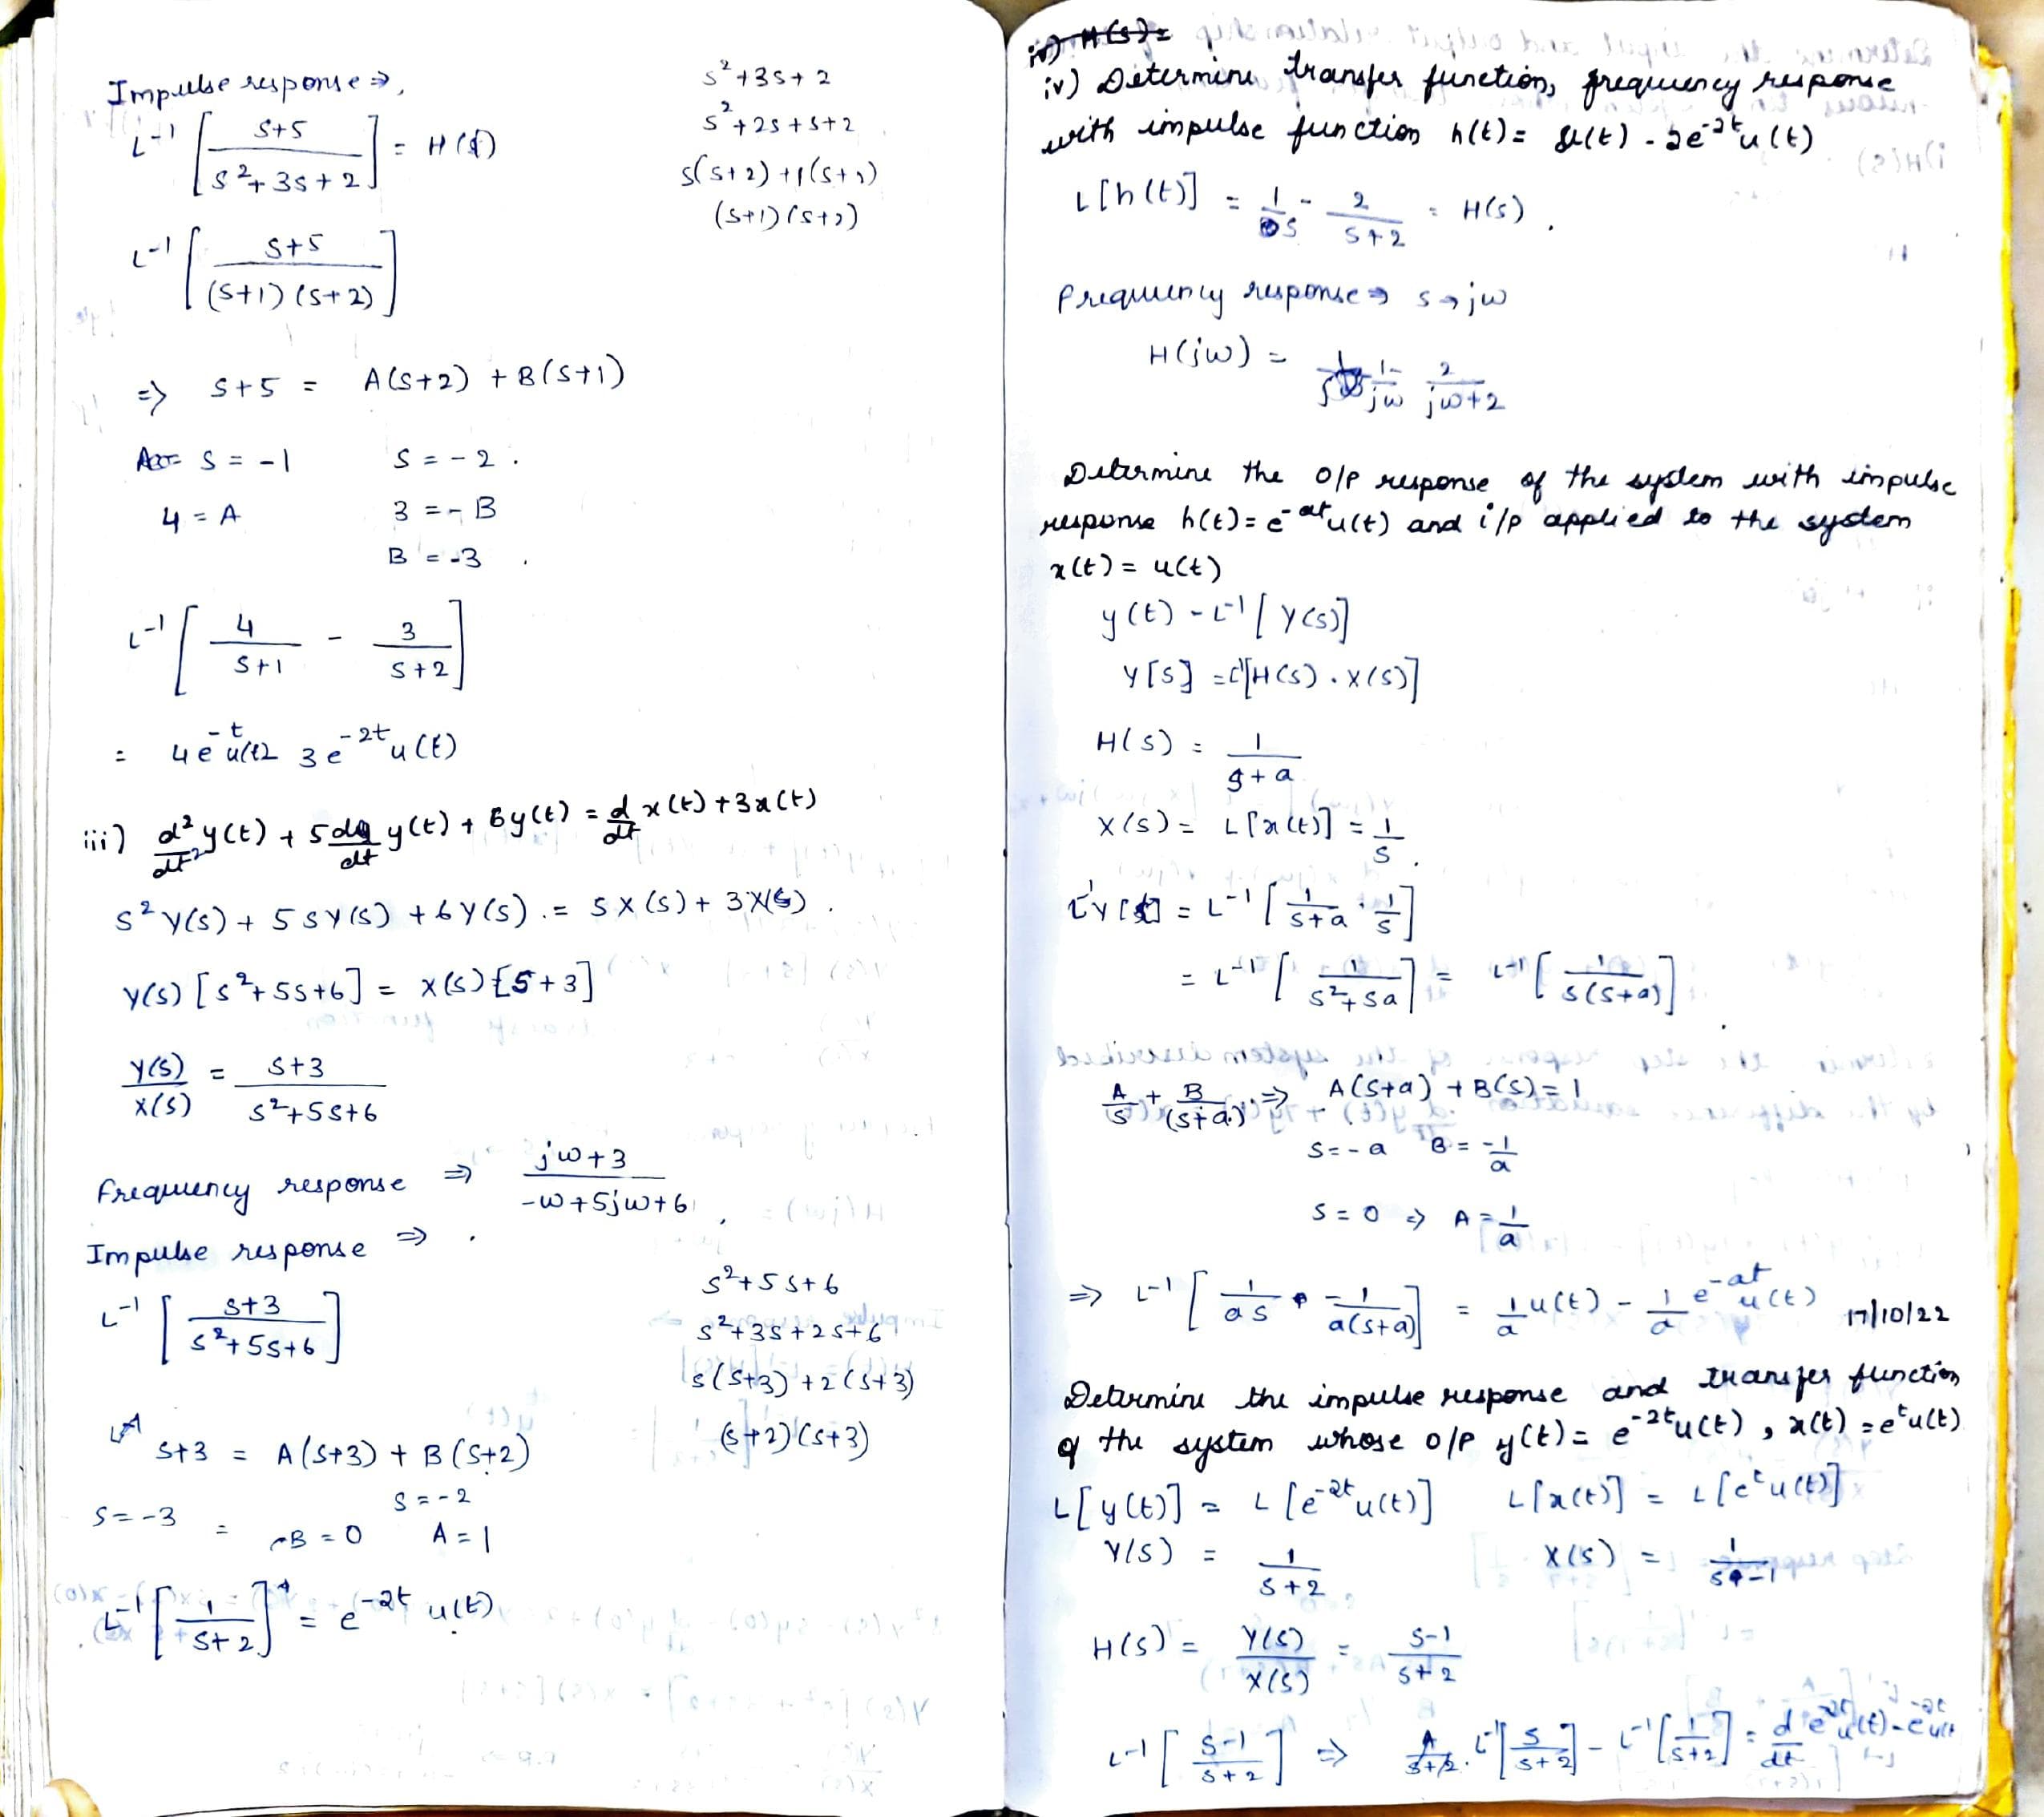 Impulse response ⇒,
L⁻¹ [ (s+5) / (s²+3s+2) ] = H(t)
s²+3s+2
s²+2s+s+2
s(s+2)+1(s+2)
(s+1)(s+2)
L⁻¹ [ (s+5) / ((s+1)(s+2)) ]
⇒ s+5 = A(s+2) + B(s+1)
s = -1    s = -2.
4 = A    3 = -B
B = -3.
L⁻¹ [ 4/(s+1) - 3/(s+2) ]
= 4e^-t u(t) - 3e^-2t u(t)
iii) d²/dt² y(t) + 5 dy/dt y(t) + 6y(t) = d/dt x(t) + 3x(t)
s²Y(s) + 5sY(s) + 6Y(s) = sX(s) + 3X(s).
Y(s) [s²+5s+6] = X(s) [s+3]
Y(s)/X(s) = (s+3) / (s²+5s+6)
Frequency response ⇒ (jω+3) / (-ω+5jω+6),
Impulse response ⇒.
L⁻¹ [ (s+3) / (s²+5s+6) ]
s²+5s+6
s²+3s+2s+6
s(s+3)+2(s+3)
(s+2)(s+3)
s+3 = A(s+3) + B(s+2)
s = -3 = -B = 0    s = -2    A = 1
L⁻¹ [ 1/(s+2) ] = e^-2t u(t)
iv) H(s) =
iv) Determine transfer function, frequency response
with impulse function h(t) = u(t) - 2e^-2t u(t)
L[h(t)] = 1/s - 2/(s+2) = H(s).
frequency response ⇒ s→jω
H(jω) = 1/jω - 2/(jω+2)
Determine the o/p response of the system with impulse
response h(t) = e^-at u(t) and i/p applied to the system
x(t) = u(t)
y(t) - L⁻¹ [Y(s)]
Y[s] = L⁻¹[H(s).X(s)]
H(s) = 1/(s+a)
X(s) = L[x(t)] = 1/s.
L⁻¹Y[s] = L⁻¹ [ 1/(s+a) . 1/s ]
= L⁻¹ [ 1/(s²+sa) ] = L⁻¹ [ 1/(s(s+a)) ]
A/s + B/(s+a) ⇒ A(s+a) + B(s) = 1
s = -a    B = -1/a
s = 0 ⇒ A = 1/a
⇒ L⁻¹ [ 1/as - 1/(a(s+a)) ] = 1/a u(t) - 1/a e^-at u(t)
17/10/22
Determine the impulse response and transfer function
of the system whose o/p y(t) = e^-2t u(t), x(t) = e^t u(t)
L[y(t)] = L[e^-2t u(t)]    L[x(t)] = L[e^t u(t)]
Y(s) = 1/(s+2)    X(s) = 1/(s-1)
H(s) = Y(s)/X(s) = (s-1)/(s+2)
L⁻¹ [ (s-1)/(s+2) ] ⇒ L⁻¹[ s/(s+2) ] - L⁻¹[ 1/(s+2) ] = d/dt e^-2t u(t) - e^-2t u(t)